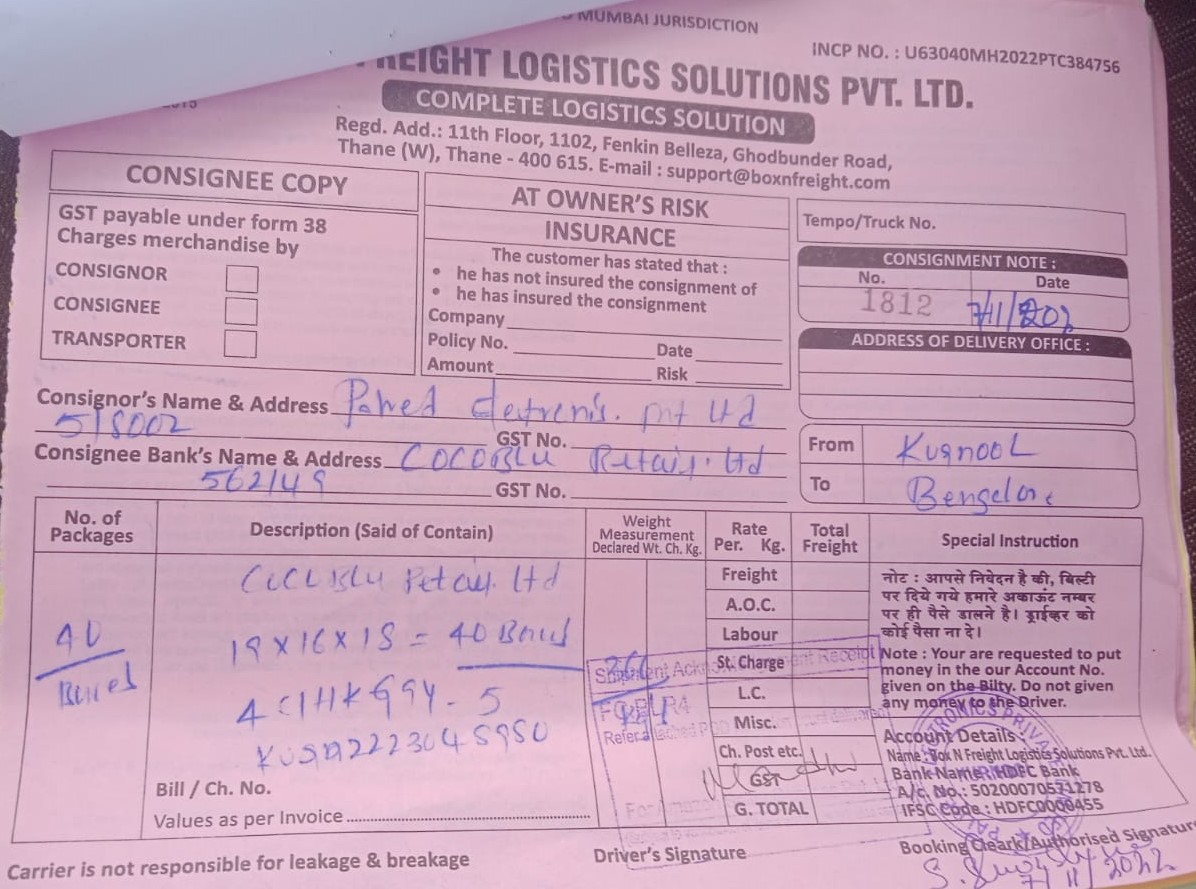 MUMBAI JURISDICTION
INCP NO. : U63040MH2022PTC384756
FREIGHT LOGISTICS SOLUTIONS PVT. LTD.
COMPLETE LOGISTICS SOLUTION
Regd. Add.: 11th Floor, 1102, Fenkin Belleza, Ghodbunder Road,
Thane (W), Thane - 400 615. E-mail : support@boxnfreight.com
CONSIGNEE COPY
GST payable under form 38
Charges merchandise by
CONSIGNOR
CONSIGNEE
TRANSPORTER
AT OWNER'S RISK
INSURANCE
The customer has stated that :
• he has not insured the consignment of
• he has insured the consignment
Company
Policy No. Date
Amount Risk
Tempo/Truck No.
CONSIGNMENT NOTE :
No. Date
1812 7/11/202
ADDRESS OF DELIVERY OFFICE :
Consignor's Name & Address pvt Ltd
518002 GST No.
Consignee Bank's Name & Address COCOBLU Retail. Ltd
562149 GST No.
From KurnooL
To Bengelore
No. of Packages
Description (Said of Contain)
Weight Measurement
Declared Wt. Ch. Kg.
Rate Per. Kg.
Total Freight
Special Instruction
40 Boxes
Retail. Ltd
19 X 16 X 18 = 40 Boxes
Bill / Ch. No.
Values as per Invoice
Freight
A.O.C.
Labour
St. Charge
L.C.
Misc.
Ch. Post etc.
GST
G. TOTAL
नोट : आपसे निवेदन है की, बिल्टी
पर दिये गये हमारे अकाऊंट नम्बर
पर ही पैसे डालने है। ड्राईव्हर को
कोई पैसा ना दे।
Note : Your are requested to put
money in the our Account No.
given on the Bilty. Do not given
any money to the Driver.
Account Details
Name : Box N Freight Logistics Solutions Pvt. Ltd.
Bank Name : HDFC Bank
A/c. No.: 50200070571278
IFSC Code : HDFC0000455
Carrier is not responsible for leakage & breakage
Driver's Signature
Booking Cleark/Authorised Signature
7/11/2022